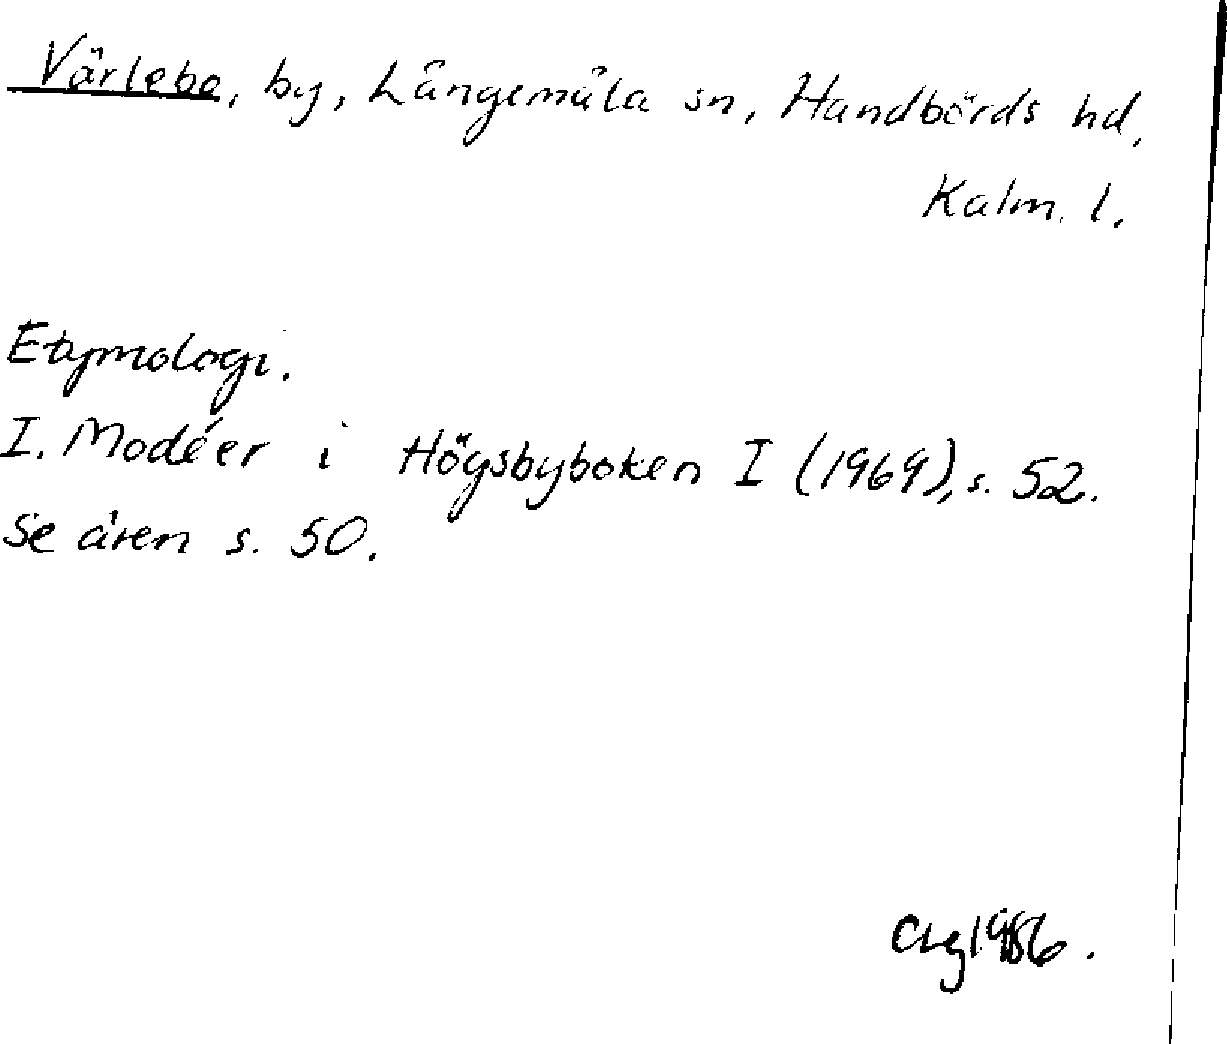 Värlebo, by, Långemåla sn, Handbörds hd,
Kalm. l.
Etymologi.
I. Modéer i Högsbyboken I (1969), s. 52.
Se även s. 50.
1986.